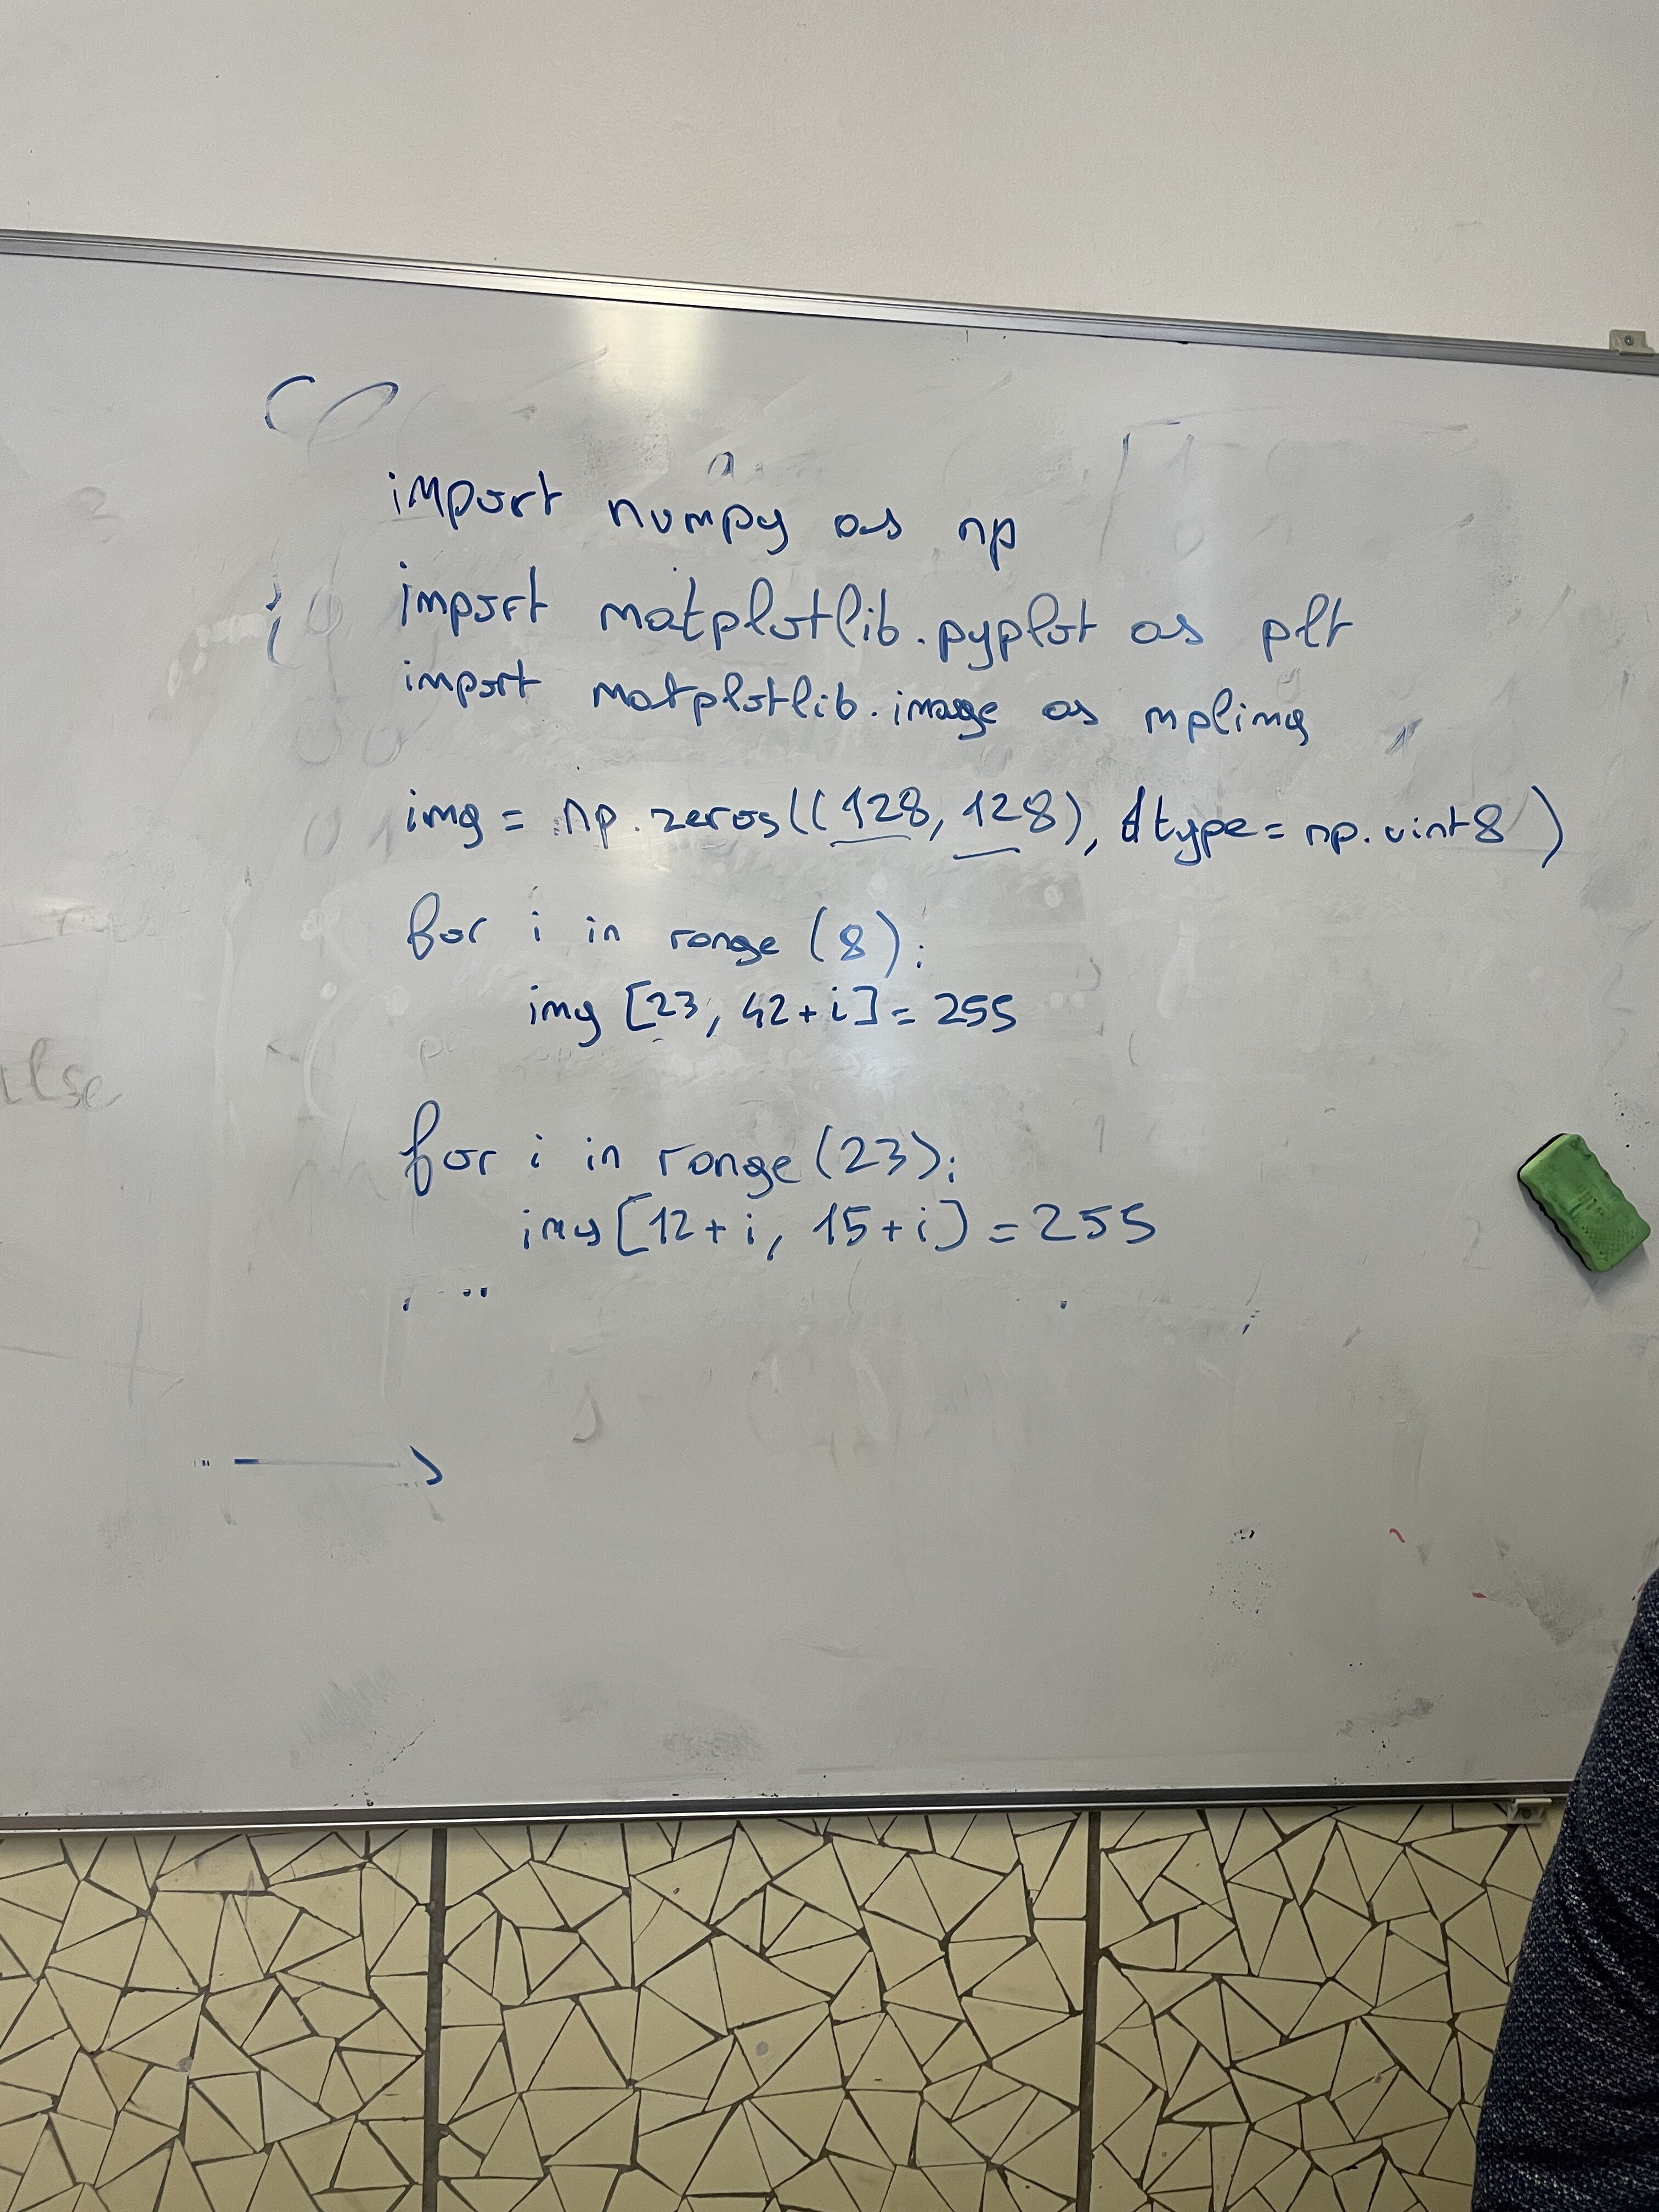 import numpy as np
import matplotlib.pyplot as plt
import matplotlib.image as mpimg
img = np.zeros((128, 128), dtype = np.uint8)
for i in range (8):
img [23, 42+i] = 255
for i in range (23):
img [12+i, 15+i] = 255